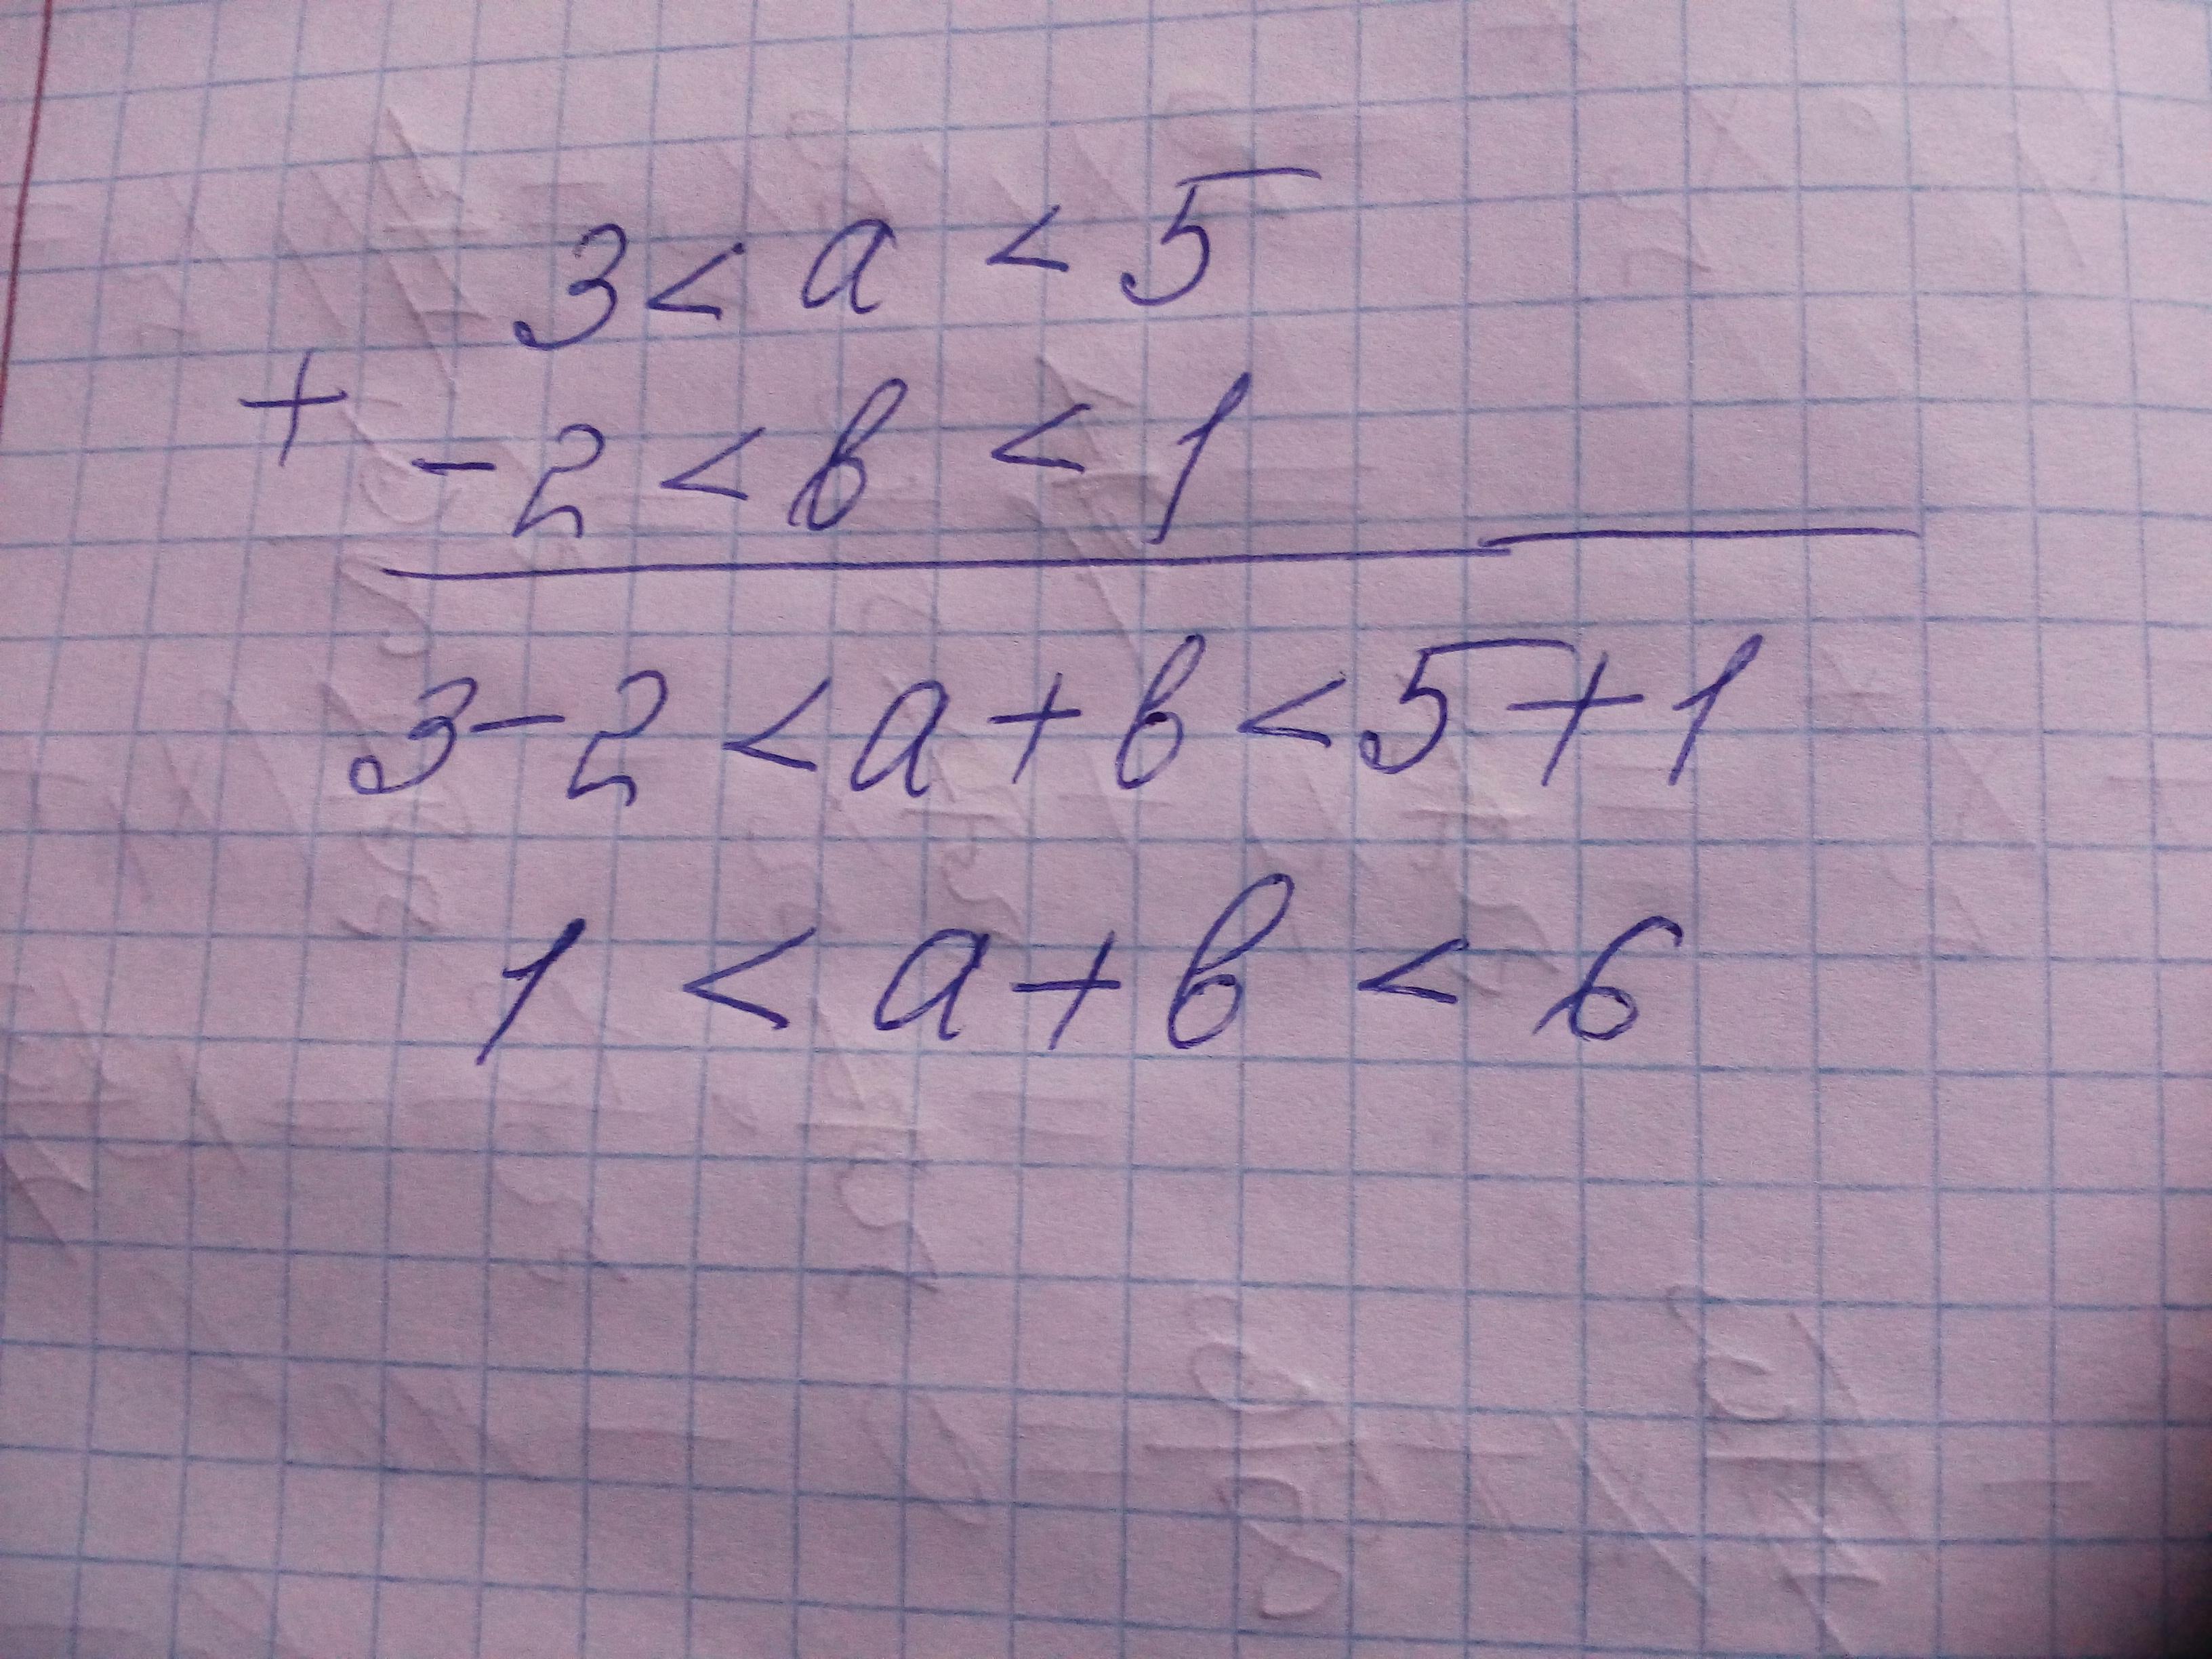 3 < a < 5
+
-2 < b < 1
3-2 < a+b < 5+1
1 < a+b < 6